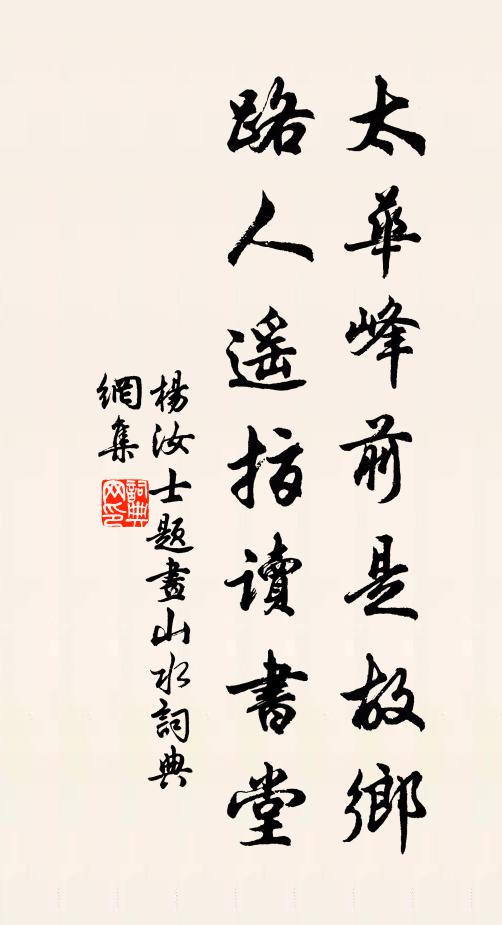 太華峰前是故鄉
路人遥指讀書堂
楊汝士題畫山水詞典
網集
詞典
网印